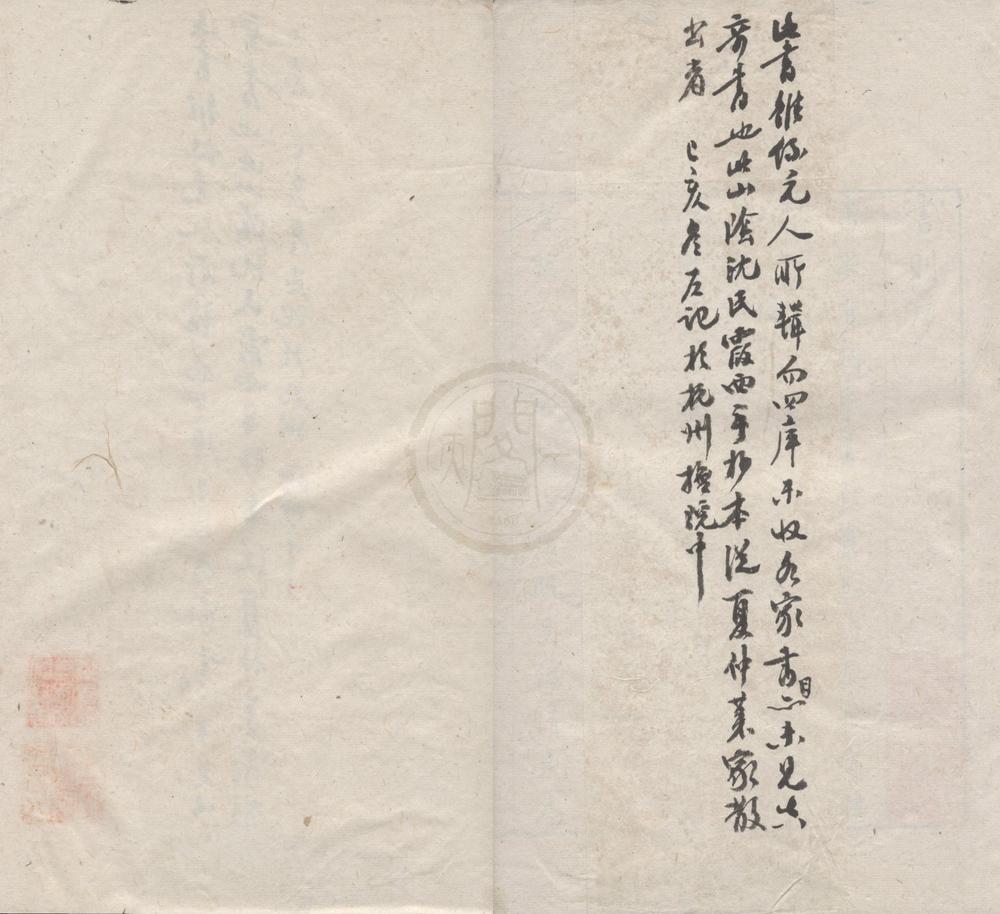 此書雖係元人所輯而四庫未收各家書目亦未見真
奇書也此山陰沈氏霞西手抄本從夏仲菜家散
出者 己亥冬石記於杭州撫院中